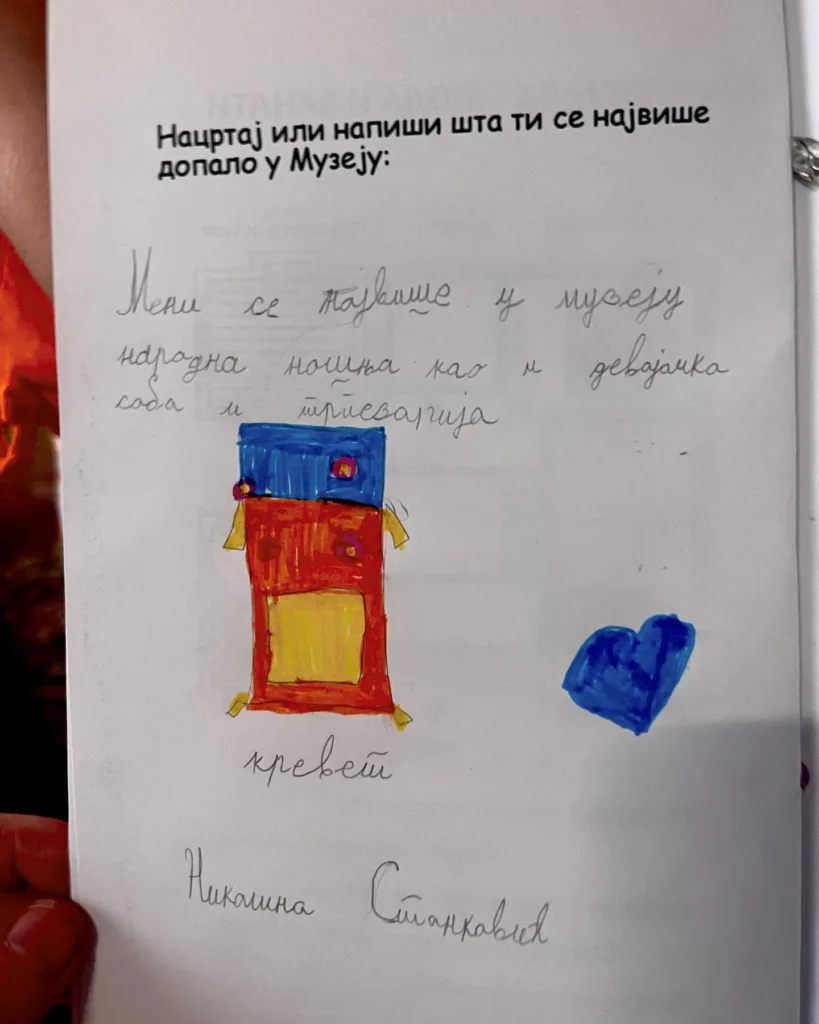 Нацртај или напиши шта ти се највише
допало у Музеју:
Мени се највише у музеју
народна ношња као и девојачка
соба и трпезарија
кревет
Николина Станковић